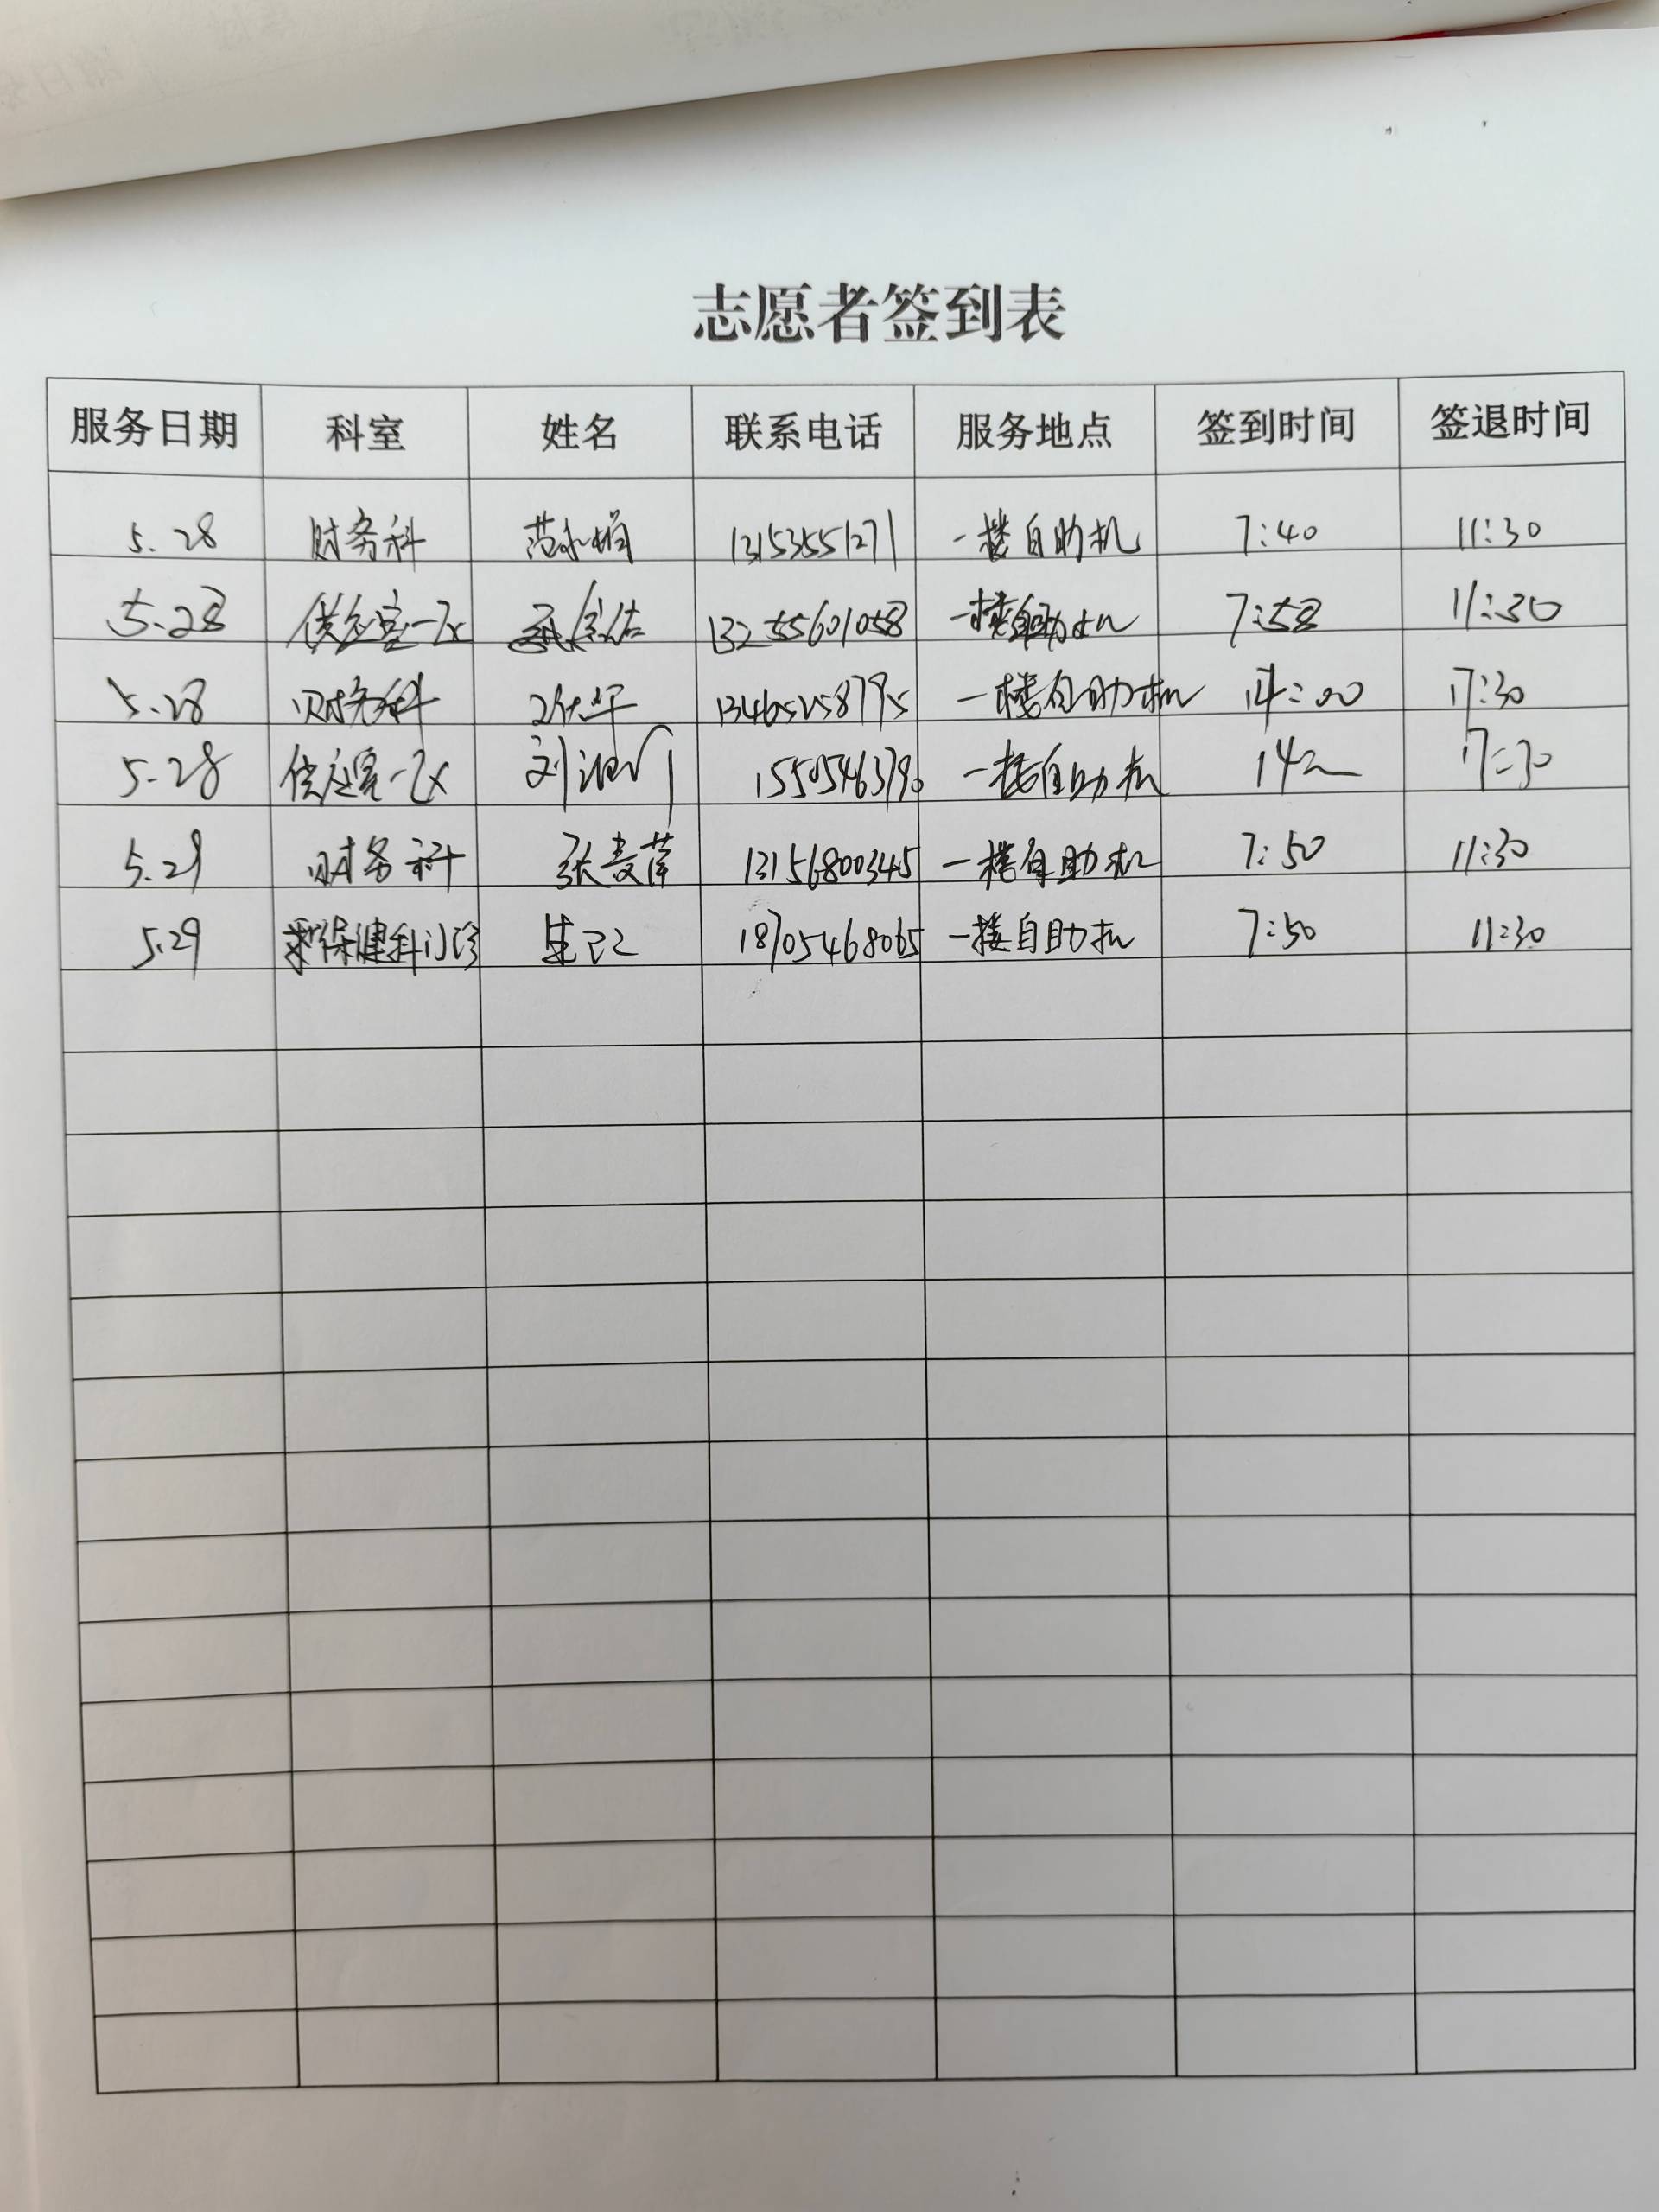 志愿者签到表
服务日期 科室 姓名 联系电话 服务地点 签到时间 签退时间
5.28 财务科 13153551271 一楼自助机 7:40 11:30
5.28 供应室一区 13255601058 一楼自助机 7:58 11:30
5.28 财务科 13465258795 一楼自助机 14:00 17:30
5.28 供应室一区 刘 15505463790 一楼自助机 17:30
5.29 财务科 张 13156800345 一楼自助机 7:50 11:30
5.29 保健科门诊 18705468065 一楼自助机 7:50 11:30